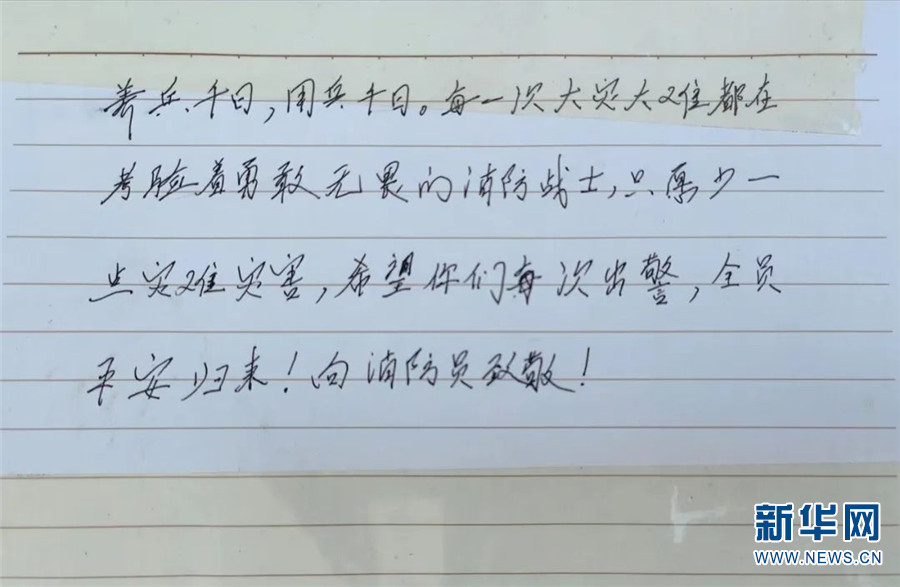 养兵千日，用兵千日。每一次大灾大难都在
考验着勇敢无畏的消防战士，只愿少一
点灾难灾害，希望你们每次出警，全员
平安归来！向消防员致敬！
新华网
WWW.NEWS.CN